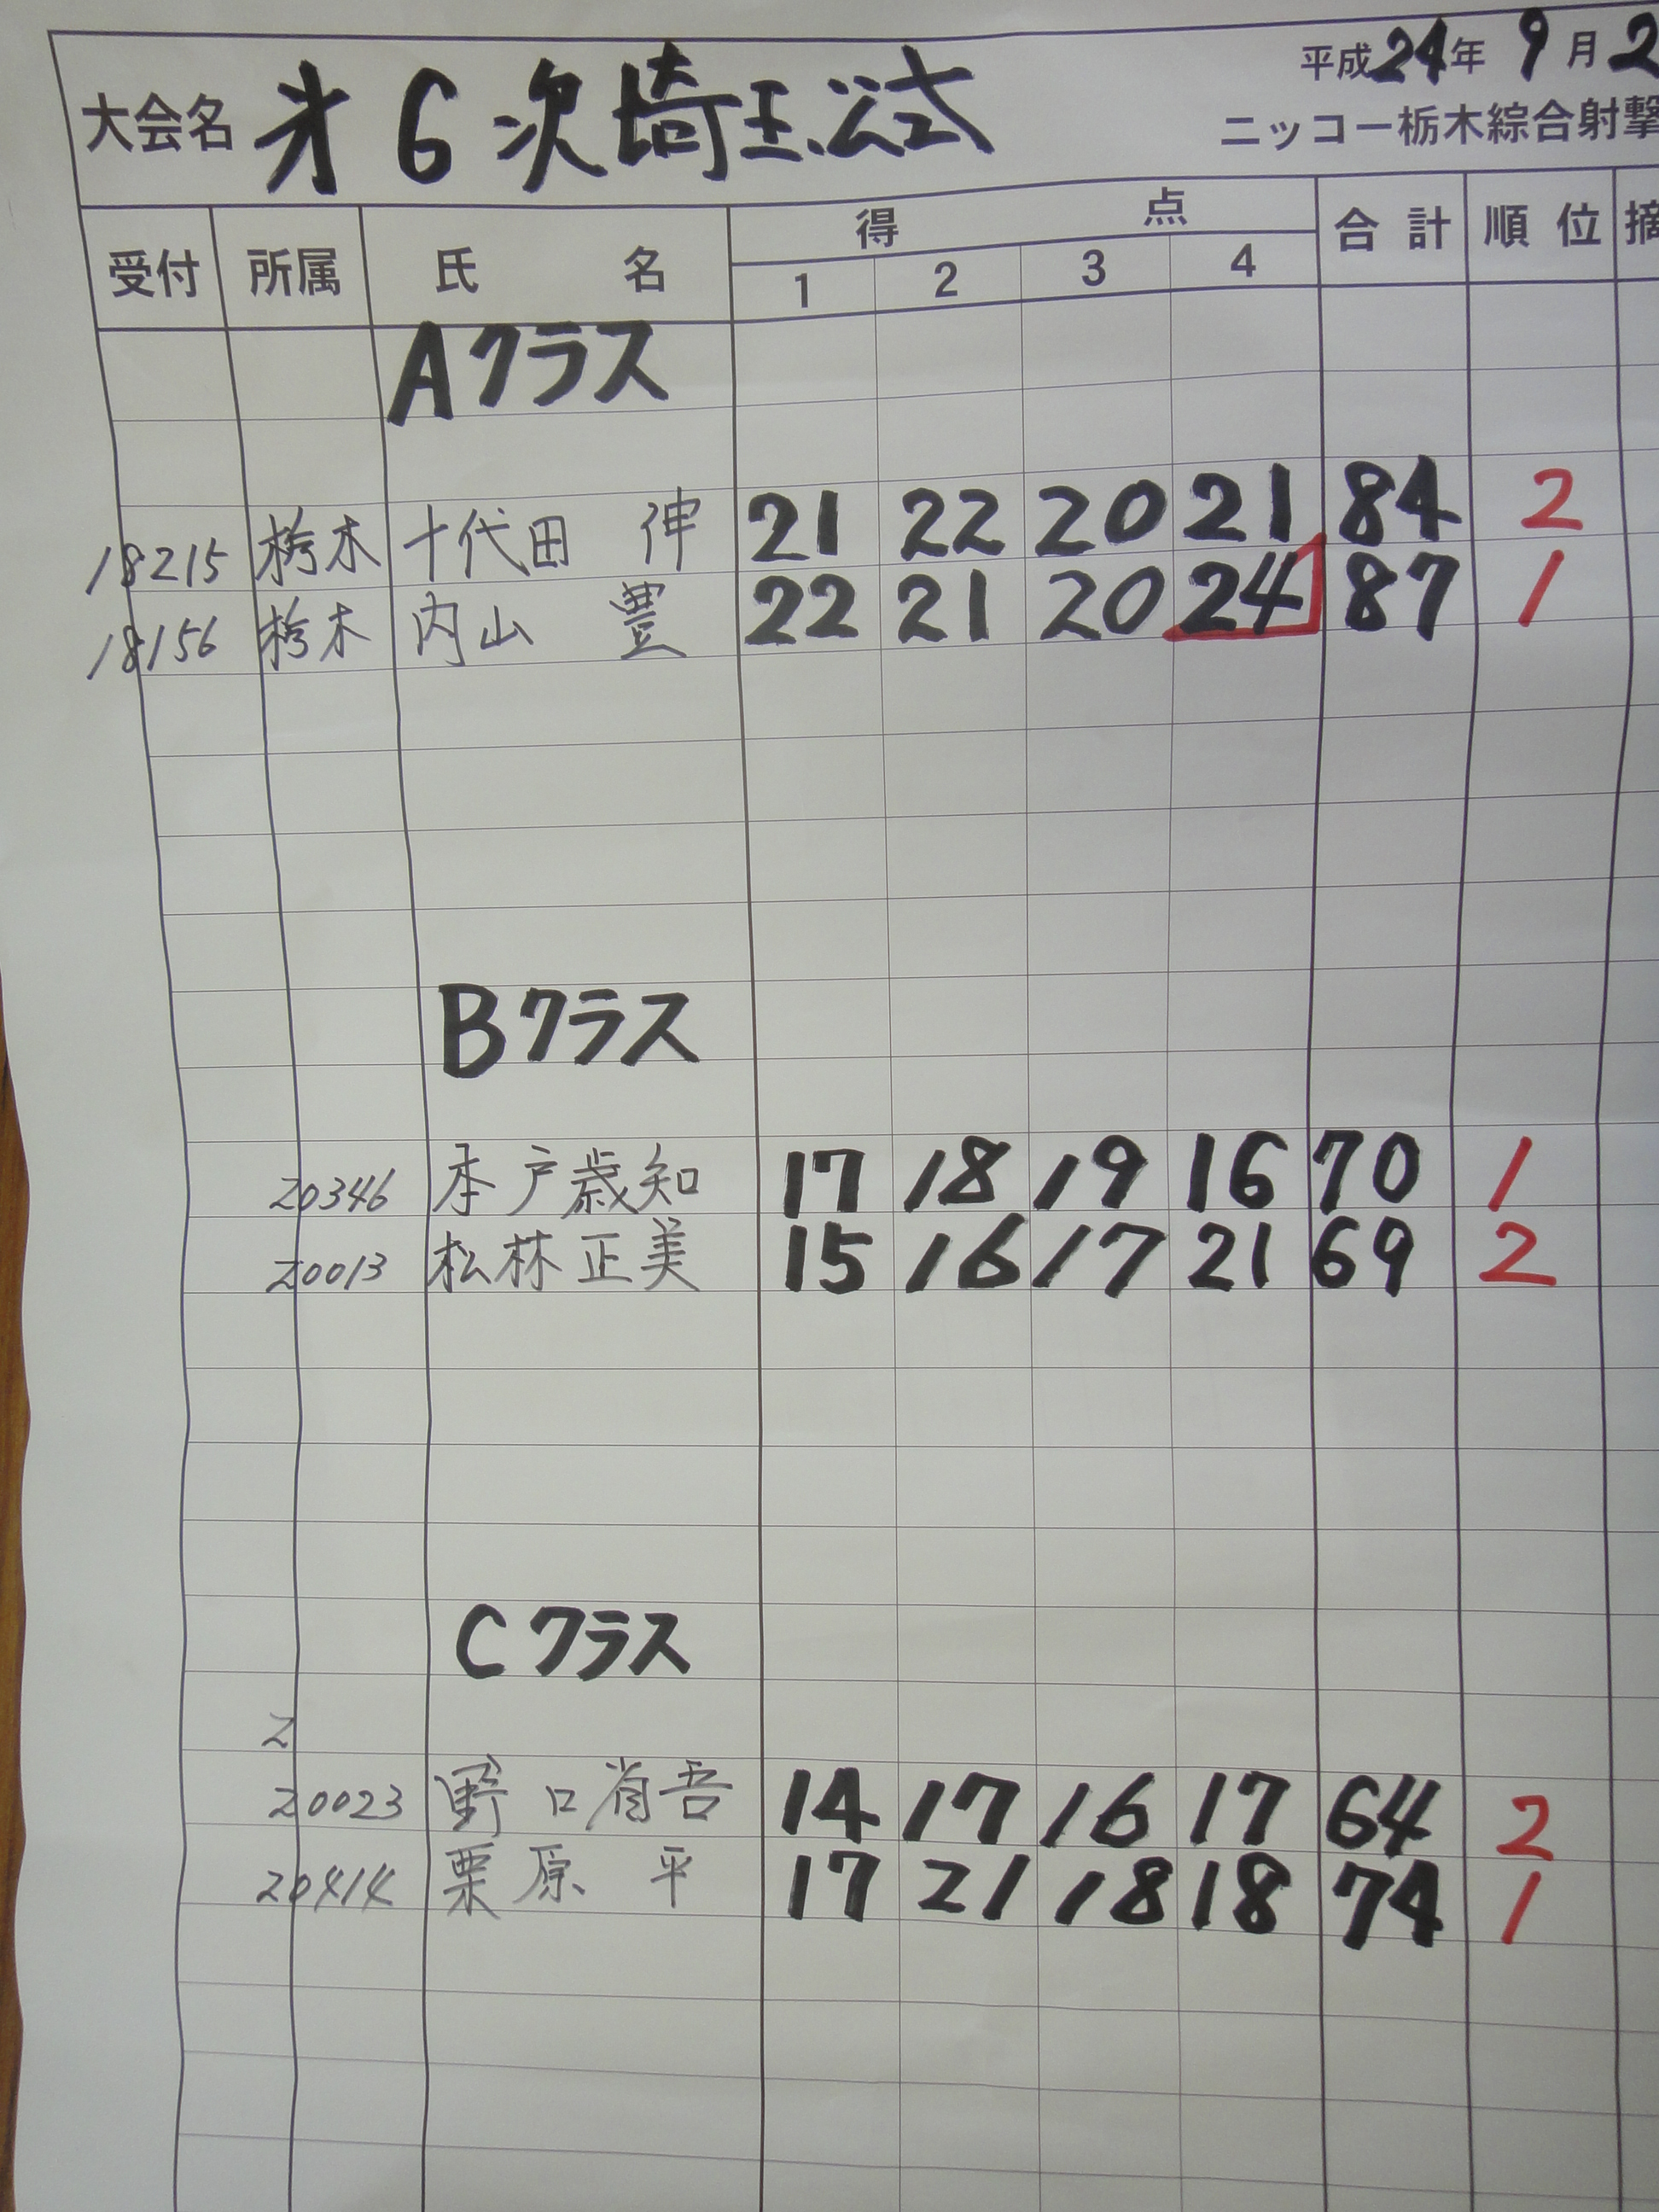 平成24年 9月2
大会名 才6次埼玉公式
ニッコー栃木綜合射撃
受付 所属 氏名 得点 合計 順位 摘
1 2 3 4
Aクラス
18215 栃木 十代田 伸 21 22 20 21 84 2
18156 栃木 内山 豊 22 21 20 24 87 1
Bクラス
20346 木戸歳知 17 18 19 16 70 1
20013 松林正美 15 16 17 21 69 2
Cクラス
2
20023 野口省吾 14 17 16 17 64 2
20414 栗原 平 17 21 18 18 74 1